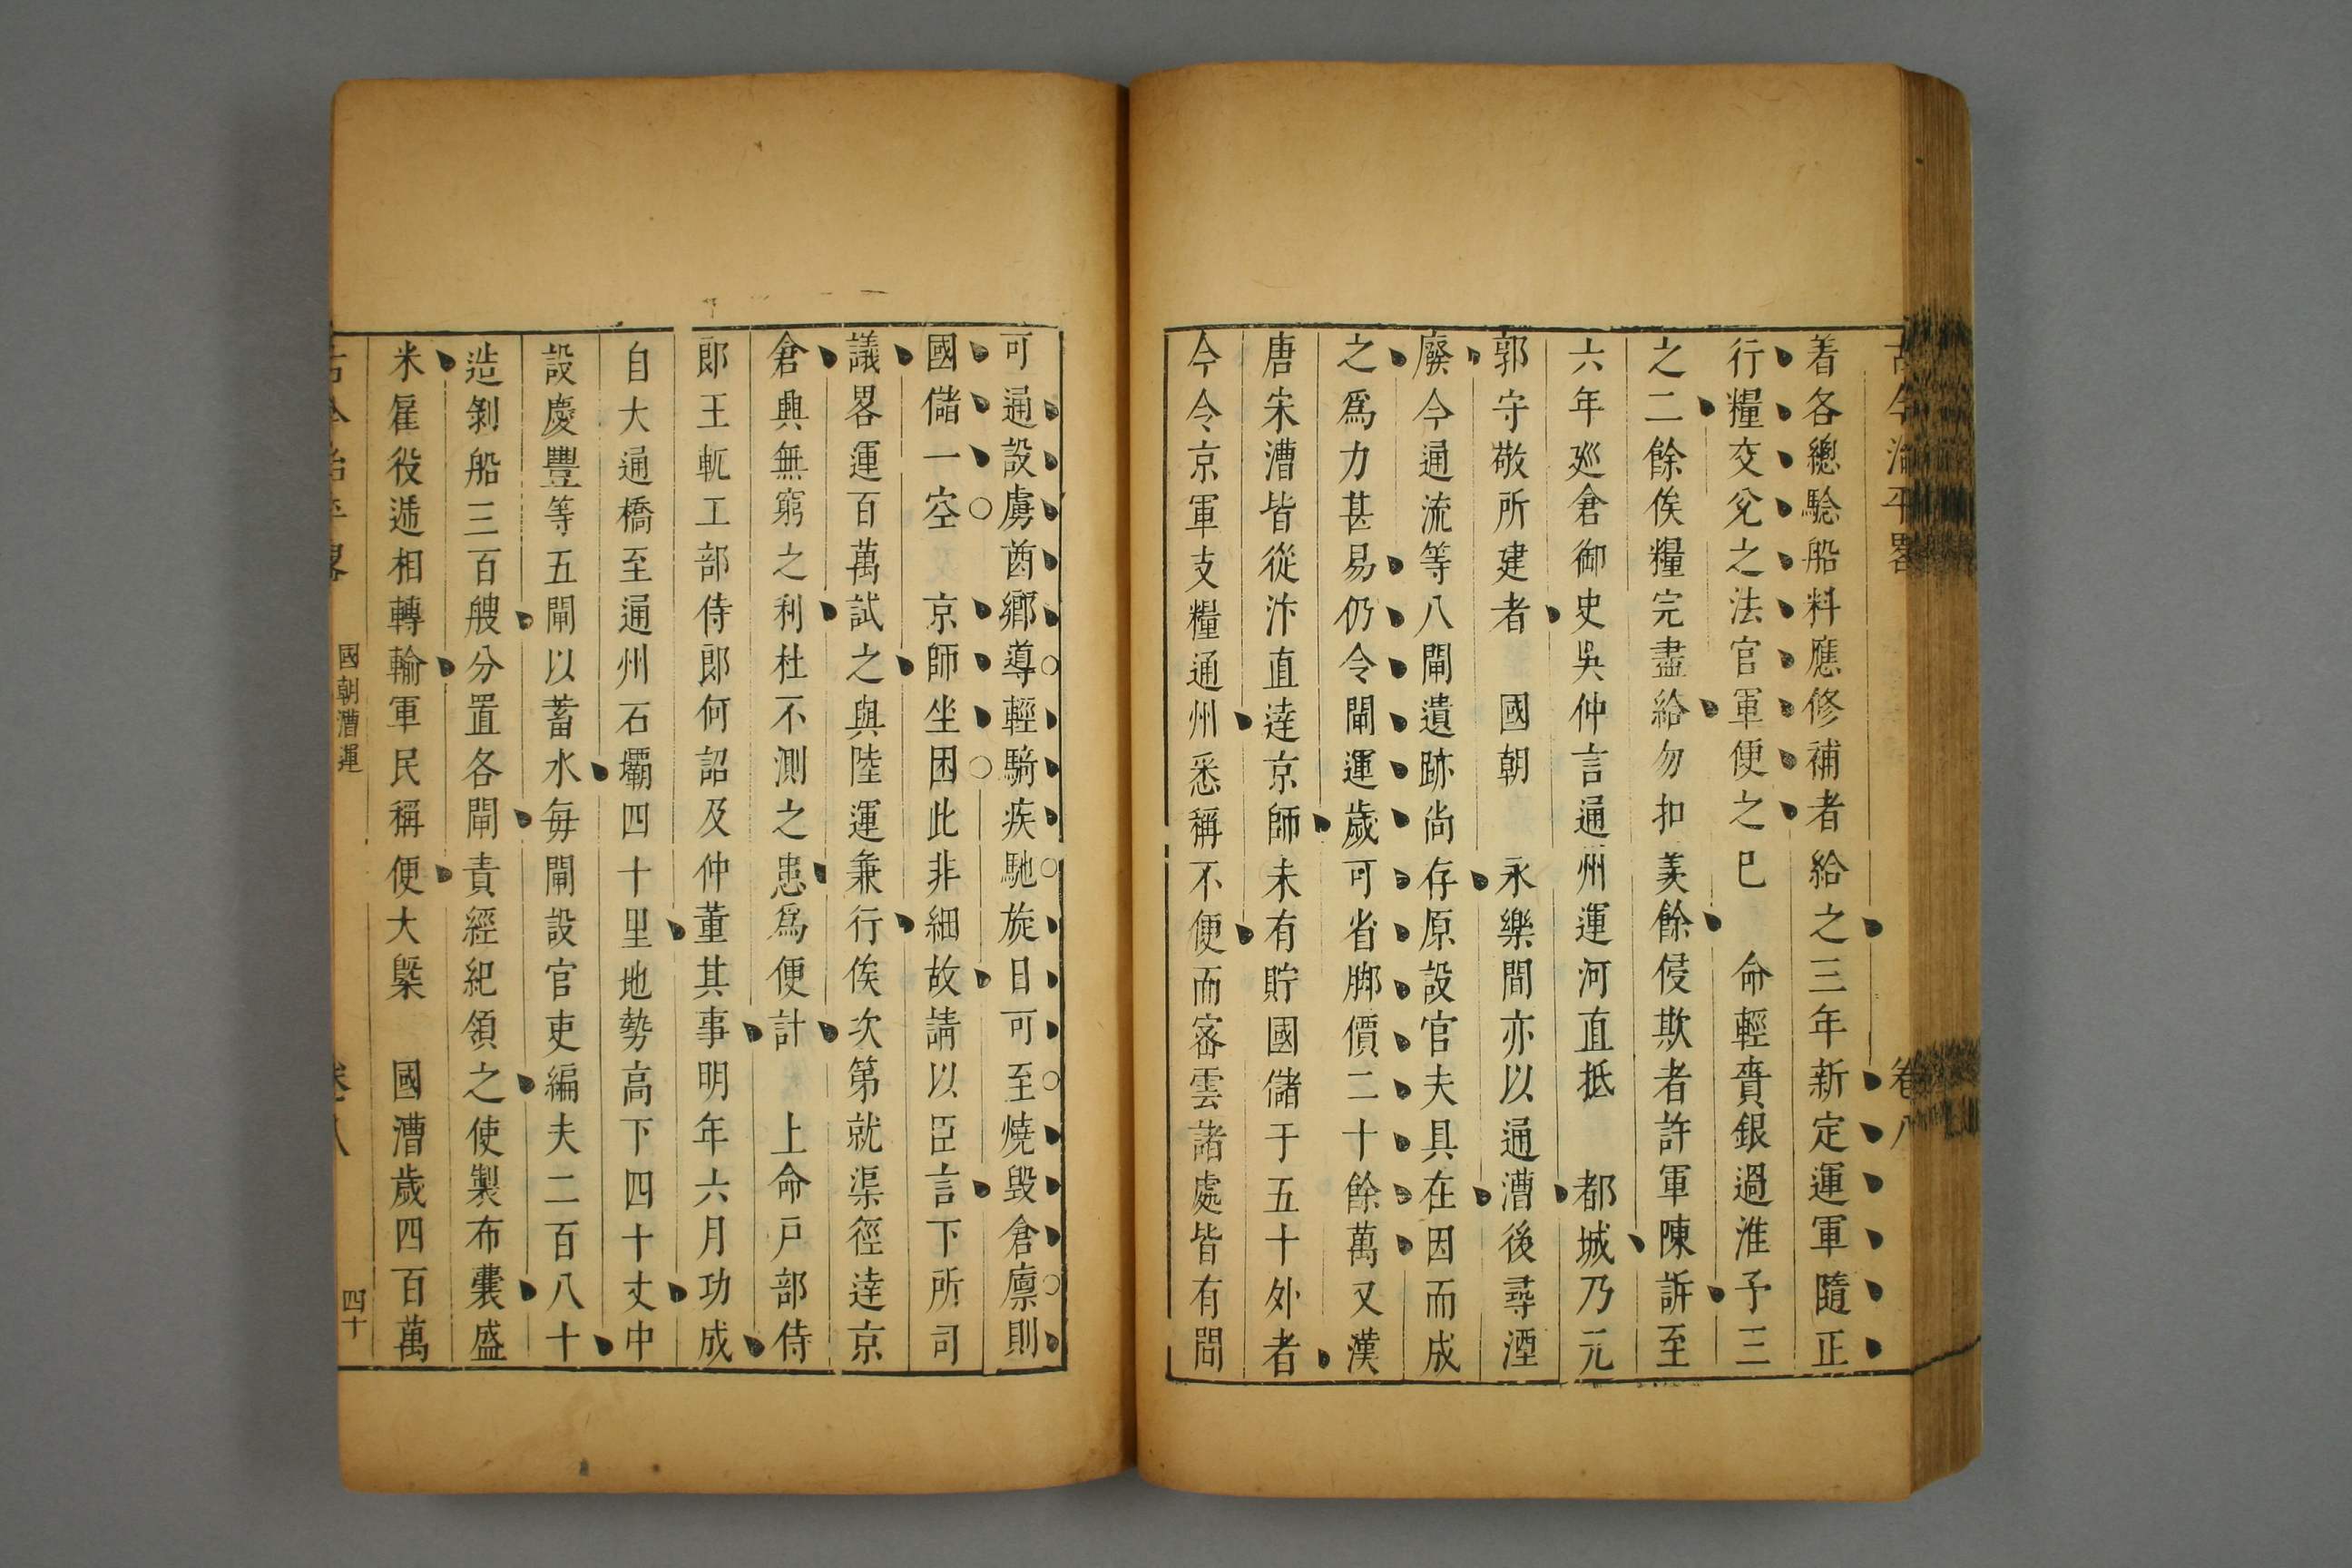 古今治平畧 卷八
着各總驗船料應修補者給之三年新定運軍隨正
行糧交兌之法官軍便之巳 命輕賫銀過淮予三
之二餘俟糧完盡給勿扣羙餘侵欺者許軍陳訴至
六年廵倉御史吳仲言通州運河直抵 都城乃元
郭守敬所建者 國朝 永樂間亦以通漕後尋湮
廢今通流等八閘遺跡尚存原設官夫具在因而成
之爲力甚易仍令閘運歲可省脚價二十餘萬又漢
唐宋漕皆從汴直逹京師未有貯國儲于五十外者
今令京軍支糧通州悉稱不便而宻雲諸處皆有間
可通設虜酋鄉導輕騎疾馳旋日可至燒毀倉廪則
國儲一空 京師坐困此非細故請以臣言下所司
議畧運百萬試之與陸運兼行俟次第就渠徑逹京
倉興無窮之利杜不測之患爲便計 上命戸部侍
郎王軏工部侍郎何詔及仲董其事明年六月功成
自大通橋至通州石壩四十里地勢高下四十丈中
設慶豐等五閘以蓄水每閘設官吏編夫二百八十
造剝船三百艘分置各閘責經紀領之使製布囊盛
米雇役遞相轉輸軍民稱便大槩 國漕歲四百萬
古今治平畧 國朝漕運 卷八 四十